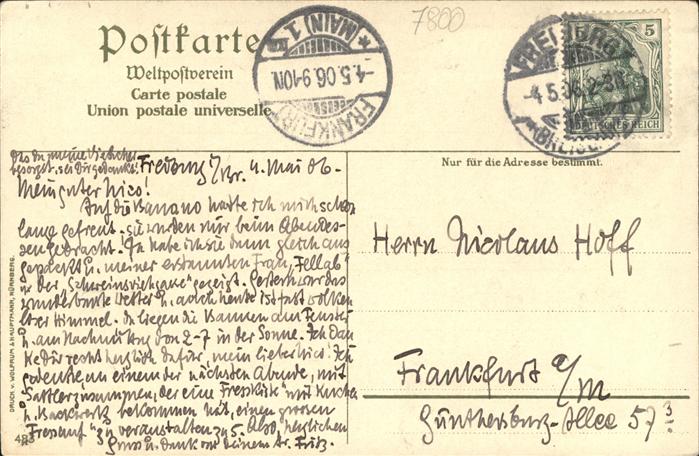 7800
Postkarte
Weltpostverein
Carte postale
Union postale universelle
FRANKFURT
* (MAIN) 1. *
-4.5.06.9-10N.
FREIBURG
-4.5.06.2-3N
BREISG.
5
DEUTSCHES REICH
Nur für die Adresse bestimmt.
Das du meine Bücher
besorgst, sei Dir gedankt.
Freiburg i/Br. 4. Mai 06.-
Mein guter Nico!
Auf die Banano hatte ich mich schon
lang gefreut. Sie wurden mir beim Abendes-
sen gebracht. Da habe ich sie dann gleich aus
gepackt u. meiner erstaunten Frau
in der gezeigt. Gestern war das
wunderbarste Wetter u. auch heute ist fast wolken
loser Himmel. Da liegen die Bananen am Fenster
u. am Nachmittag von 2-7 in der Sonne. Ich dan
ke Dir recht herzlich dafür, mein lieber Nico! Ich
gedenke, an einem der nächsten Abende, mit
Sattler zusammen, der eine Fresskiste mit Kuchen
u. Backwerk bekommen hat, einen grossen
"Fressauf" zu veranstalten zu 5. Also, herzlichen
Gruss u. Dank von Deinem tr. Fritz.
Herrn Nicolaus Hoff
Frankfurt a/M
Günthersburg-Allee 57 3
DRUCK V. WOLFRUM & HAUPTMANN, NÜRNBERG.
483